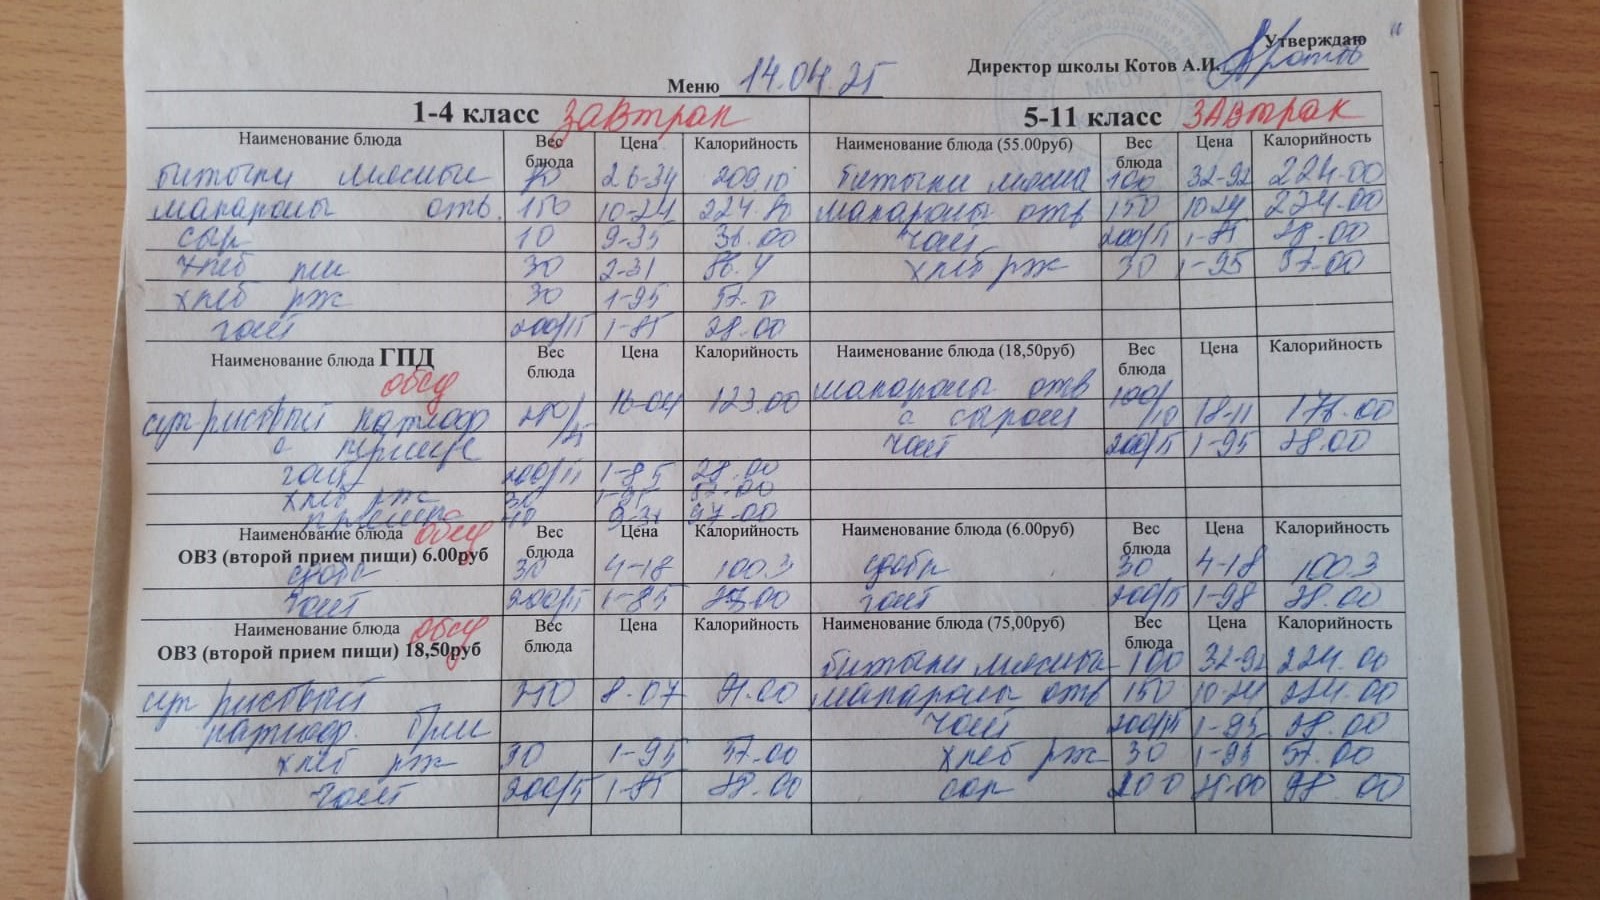 Утверждаю
Директор школы Котов А.И.
Меню 14.04.25
1-4 класс завтрак 5-11 класс завтрак
Наименование блюда Вес блюда Цена Калорийность Наименование блюда (55.00руб) Вес блюда Цена Калорийность
биточки мясные 26-34 209.10 биточки мясные 100 32-92 224.00
макароны отв. 150 10-24 224.80 макароны отв 150 10-24 224.00
сыр 10 9-35 36.00 чай 200/15 1-85 28.00
хлеб пш 30 2-31 86.4 хлеб рж 30 1-95 57.00
хлеб рж 30 1-95 57.0
чай 200/15 1-85 28.00
Наименование блюда ГПД обед Вес блюда Цена Калорийность Наименование блюда (18,50руб) Вес блюда Цена Калорийность
суп рисовый картоф 16-04 123.00 макароны отв 100/10 18-11 176.00
с сыром
чай 200/15 1-95 28.00
чай 200/15 1-85 28.00
хлеб рж 30 1-95 57.00
Наименование блюда обед Вес блюда Цена Калорийность Наименование блюда (6.00руб) Вес блюда Цена Калорийность
ОВЗ (второй прием пищи) 6.00руб
сдоба 30 4-18 100.3 сдоба 30 4-18 100.3
чай 200/15 1-85 28.00 чай 200/15 1-98 28.00
Наименование блюда обед Вес блюда Цена Калорийность Наименование блюда (75,00руб) Вес блюда Цена Калорийность
ОВЗ (второй прием пищи) 18,50руб
биточки мясные 100 32-92 224.00
суп рисовый 250 8-07 макароны отв 150 10-24 224.00
картоф. чай 200/15 1-95 28.00
хлеб рж 30 1-95 57.00 хлеб рж 30 1-95 57.00
чай 200/15 1-85 28.00 сок 200 98.00